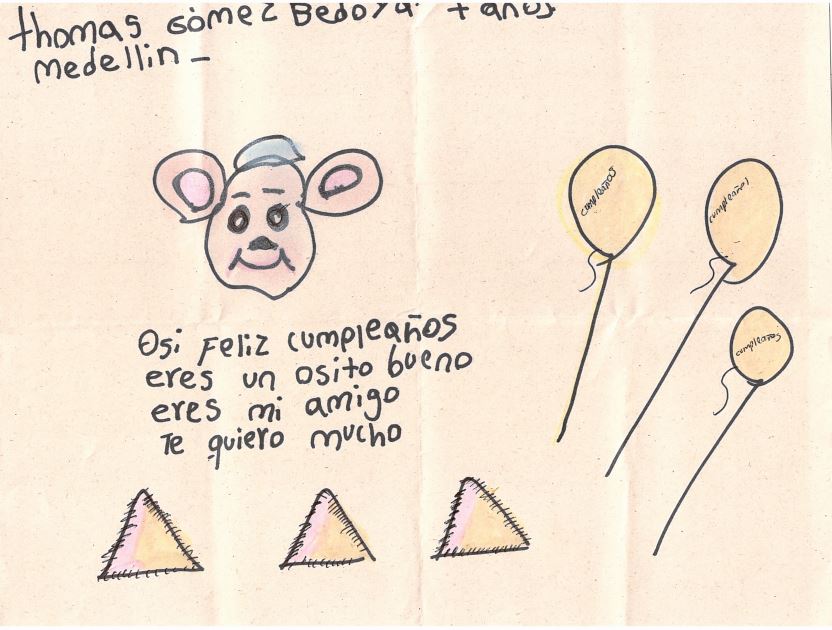 thomas Gómez Bedoya años
medellin -
cumpleaños
cumpleaños
cumpleaños
Osi Feliz cumpleaños
eres un osito bueno
eres mi amigo
Te quiero mucho